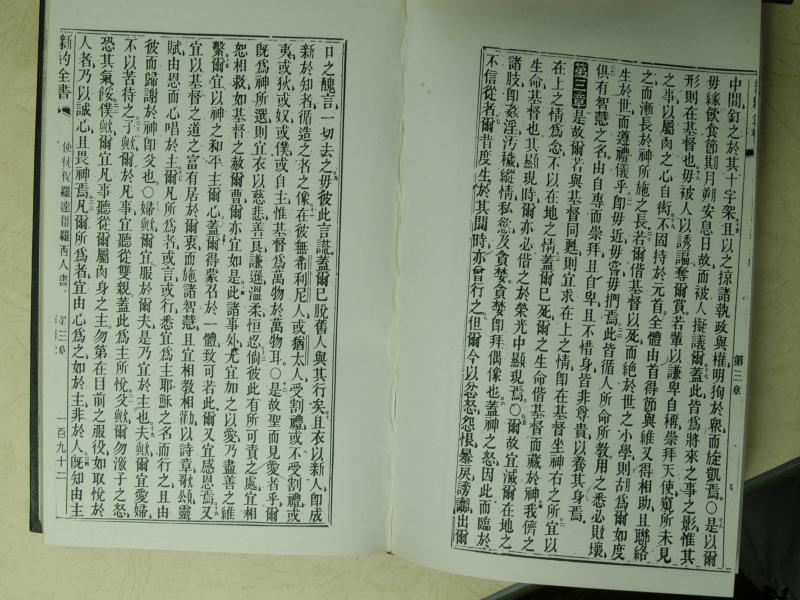 第三章
中間釘之於其十字架且以之掠諸執政與權明狥於衆而旋凱焉○是以爾
毋緣飲食節期月朔安息日故而被人擬議爾蓋此皆爲將來之事之影惟其
形則在基督也毋被人以誘騙奪爾賞若輩以謙卑自稱崇拜天使窺所未見
之事以屬肉之心自衒不固持於元首全體由首得節與維又得相助且聯絡
之而漸長於神所施之長若爾偕基督以死而絕於世之小學則胡爲爾如度
生於世而遵禮儀乎卽毋近毋嘗毋捫焉此皆循人所命所敎用之悉必敗壞
俱有智慧之名由自專而崇拜且自卑且不惜身皆非尊貴以養其身焉
第三章是故爾若與基督同甦則宜求在上之情卽在基督坐神右之所宜以
在上之情爲念不以在地之情蓋爾已死爾之生命偕基督而藏於神我儕之
生命基督也其顯現時爾亦必偕之於榮光中顯現焉○爾故宜滅爾在地之
諸肢卽姦淫汚穢縱情私慾及貪婪貪婪卽拜偶像也蓋神之怒因此而臨於
不信從者爾昔度生於其間時亦曾行之但爾今以忿怒怨恨暴戾謗讟出爾
口之醜言一切去之毋彼此言謊蓋爾已脫舊人與其行矣且衣以新人卽成
新於知者循造之者之像在彼無希利尼人或猶太人受割禮或不受割禮或
夷或狄或奴或僕或自主惟基督爲萬物於萬物耳○是故聖而見愛者乎爾
旣爲神所選則宜衣以慈悲善良謙遜溫柔恒忍倘彼此有所可責之處宜相
恕相救如基督之赦爾曹爾亦宜如是此諸事外尤宜加之以愛乃盡善之維
繫爾宜以神之和平主爾心蓋爾得蒙召於一體致可若此爾又宜感恩焉又
宜以基督之道之富有居於爾衷而施諸智慧且宜相敎相勸以詩章歌頌靈
賦由恩而心唱於主爾凡所爲者或言或行悉宜爲主耶穌之名而行之且由
彼而歸謝於神卽父也○婦歟爾宜服於爾夫是乃宜於主也夫歟爾宜愛婦
不以苦待之子歟爾於凡事宜聽從雙親蓋此爲主所悅父歟爾勿激子之怒
恐其氣餒僕歟爾宜凡事聽從爾屬肉身之主勿第在目前之服役如取悅於
人者乃以誠心且畏神焉凡爾所爲者宜由心爲之如於主非於人旣知由主
新約全書 使徒保羅達哥羅西人書 第三章 一百九十二